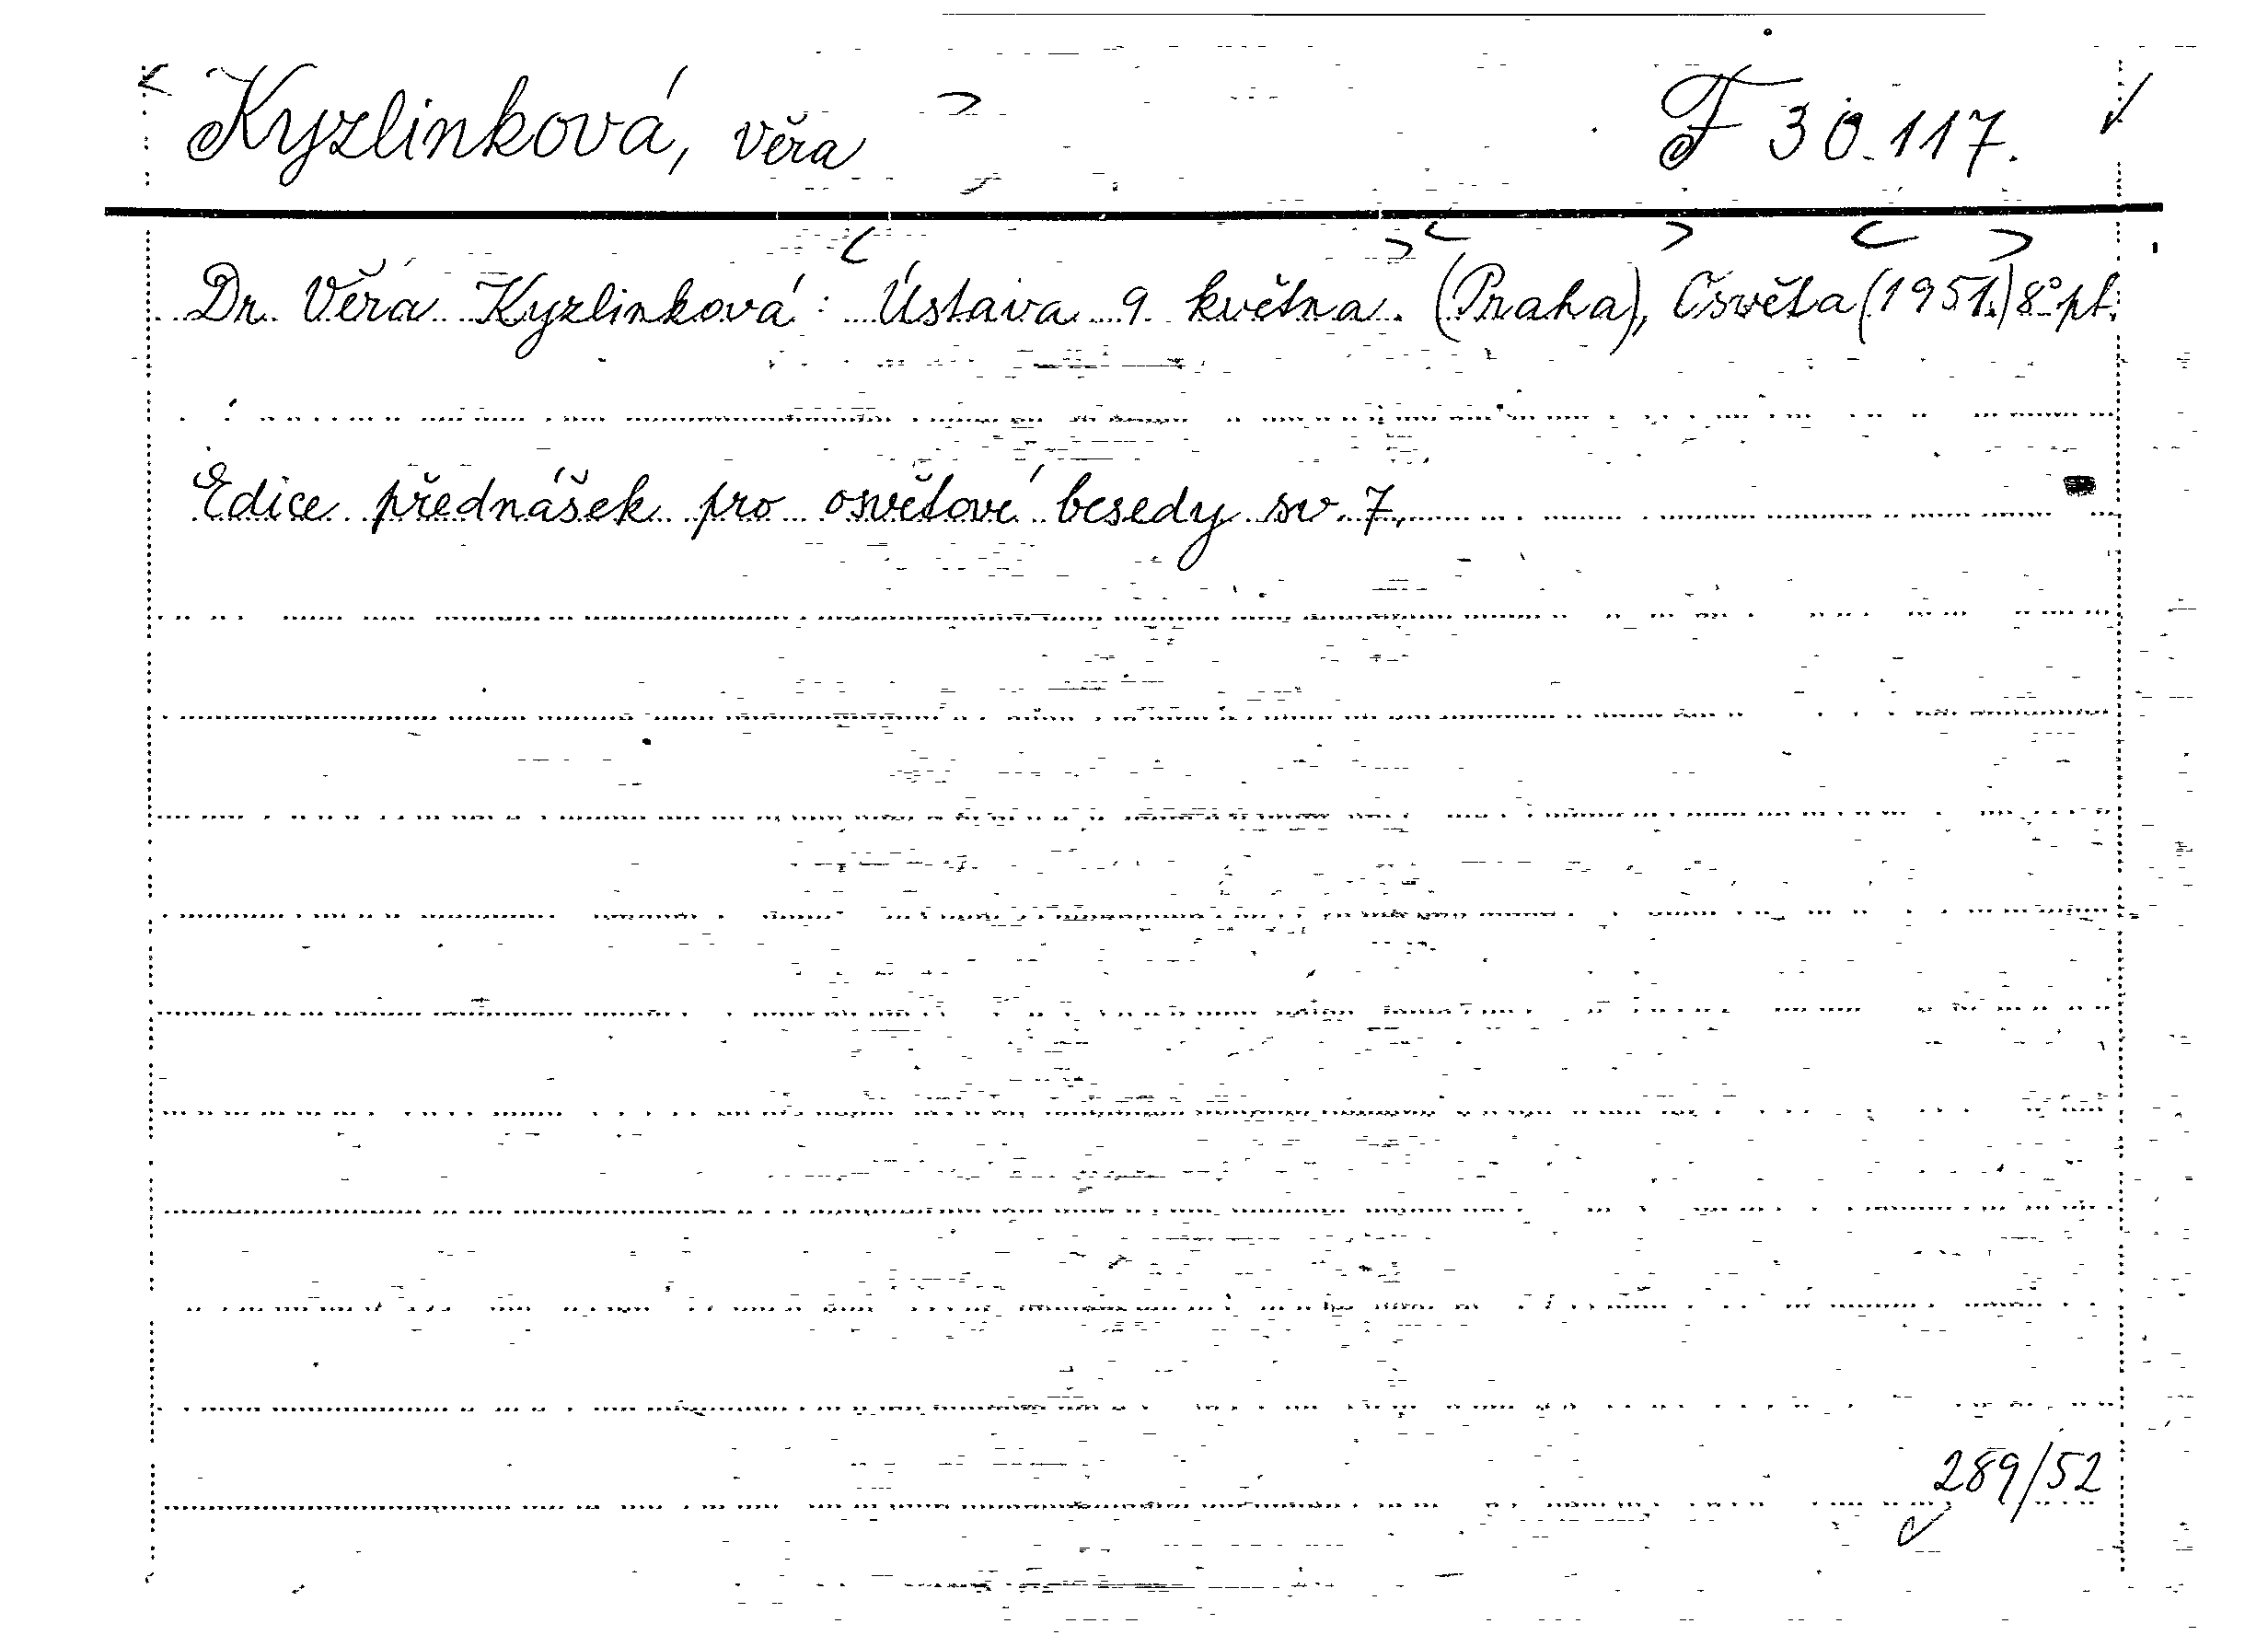 Kyzlinková, Věra F 30.117.
Dr. Věra Kyzlinková: Ústava 9. května. (Praha), Osvěta (1951.) 8° pt.
Edice přednášek pro osvětové besedy sv. 7.
289/52